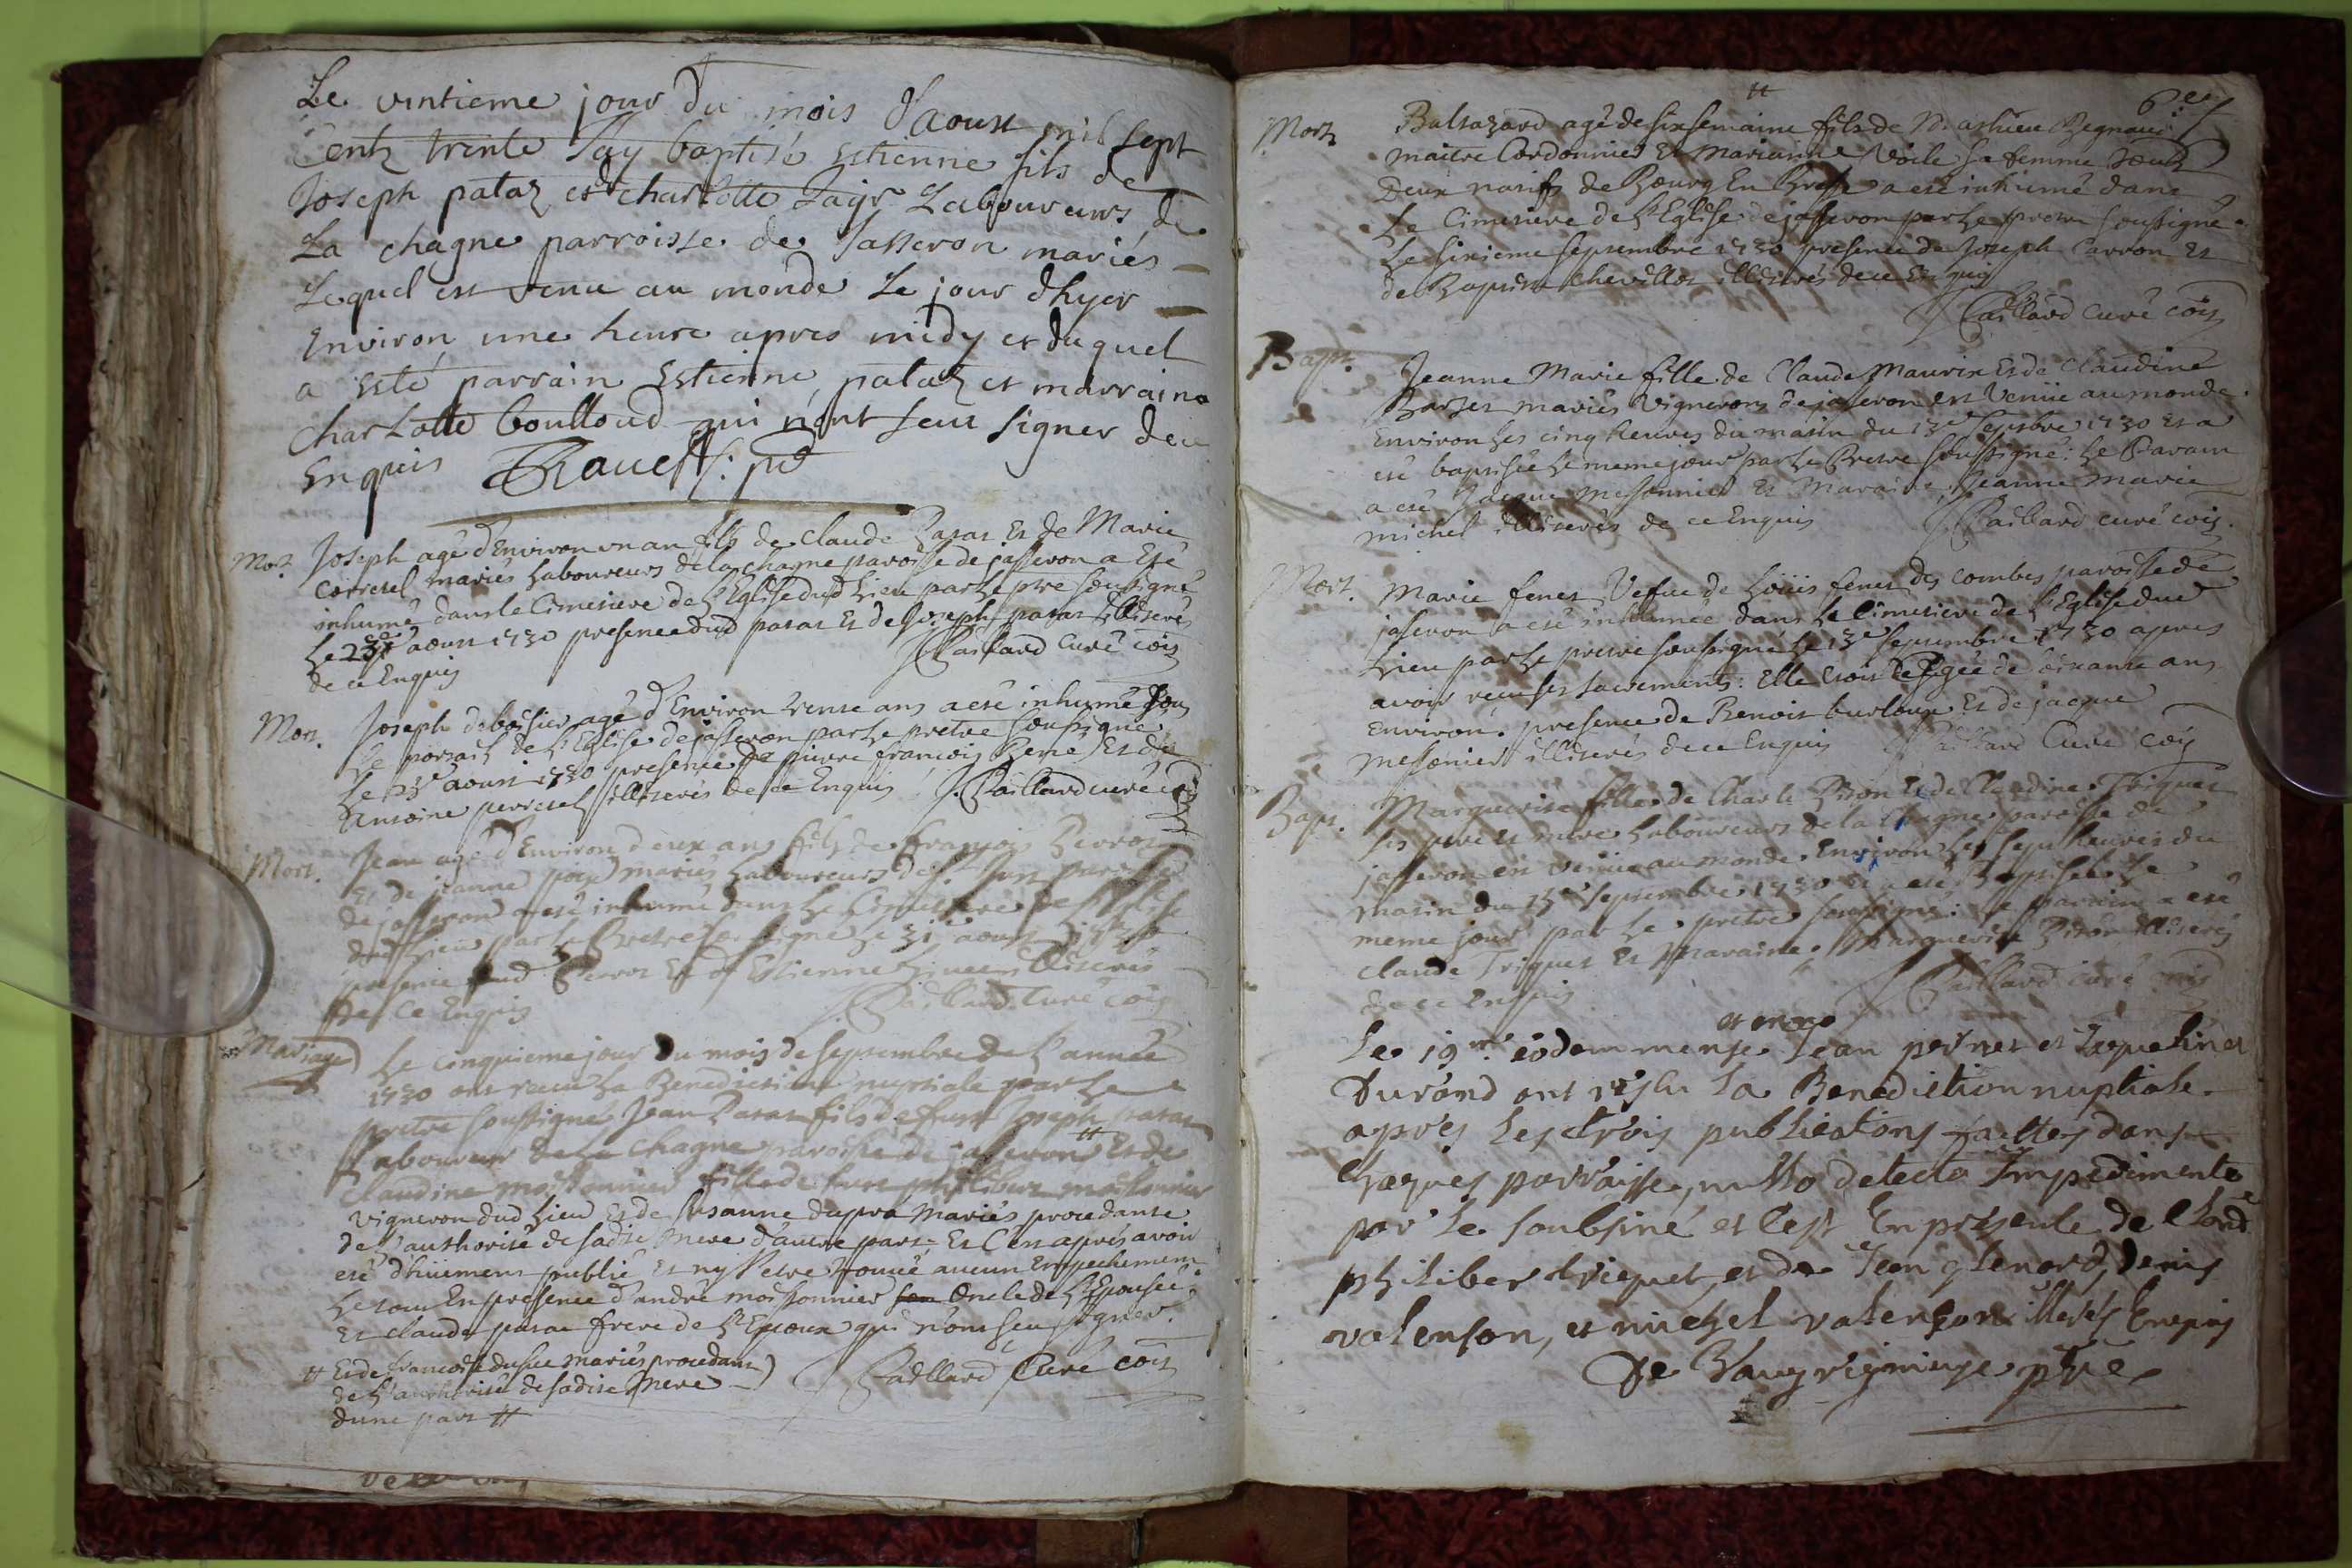 Le vintieme jour du mois d'aoust mil sept
Centz trente J'ay baptisé Estienne fils de
Joseph pataz et charlotte Layr Laboureurs de
La chagne parroisse de Jasseron mariés
Lequel est venu au monde Le jour d'hyer
Environ une heure apres midy et duquel
a esté parrain Estienne pataz et marraine
charlotte boulloud qui n'ont sceu signer de ce
Enquis
Mort. Joseph agé d'Environ un an fils de Claude Patat Et de Marie
Corretel mariés Laboureurs de la chagne paroisse de jasseron a Eté
inhumé dans le Cimetiere de L'Eglise dud Lieu par Le pre soussigné
Le 23e aoust 1730 presence dud patat Et de Joseph patat illiterés
de ce Enquis Paillard Curé cõis
Mort. Joseph deboisieu agé d'Environ trente ans a eté inhumé sous
Le portail de L'Eglise de jasseron par Le pretre soussigné
Le 23e aoust 1730 presence de pierre francois Perre Et de
Antoine perretel illiterés de ce Enquis Paillard curé cõis
Mort. Jean agé d'Environ deux ans fils de francois Perrot
Et de jeanne mariés Laboureurs de St Just paroisse
de jasseron a eté inhumé dans Le Cimetiere de L'Eglise
dud Lieu par Le Pretre soussigné Le 31e aoust 1730
presence dud Perrot Et de Estienne illiterés
de Ce Enquis Paillard Curé cõis
Mariage Le cinquieme jour du mois de septembre de L'année
1730 ont receu La Benediction nuptiale par Le
pretre soussigné Jean Patat fils de fut Joseph patat
Laboureur de La chagne paroisse de jasseron # Et de
Claudine moissonnier fille de fut philibert moissonnier
vigneron dud Lieu Et de susanne dupra Mariés procedante
de L'authorité de sadite Mere d'autre part Et C'est aprés avoir
eté dhüement publié Et ny s'etre trouvé aucun Empechement
Le tout En presence d'andré moissonnier son Oncle de L'Epousée
Et claude patat frere de L'Epoux qui n'ont sceu signer.
# Et de francoise mariés procedant
de L'authorité de sadite Mere
dune part # Paillard Curé cõis
Mort. Baltazard agé de six semaine fils de Mathieu Regnaud
maitre Cordonnier Et Marianne Voile sa femme tous
Deux natifs de Bourg En Bresse a eté inhumé dans
Le Cimetiere de L'Eglise de jasseron par Le pretre soussigné
Le sixieme septembre 1730 presence de Joseph Carron Et
de Baptiste Chevillot illiterés de ce Enquis
Paillard curé cõis
Bapt. Jeanne Marie fille de Claude Maurix Et de Claudine
Barset mariés vignerons de jasseron est Venüe au monde
Environ Les cinq heures du matin du 13e septbre 1730 Et a
eté baptisée Le meme jour par Le Pretre soussigné: Le Parain
a eté Jacque messonnier Et Maraine Jeanne Marie
michel illiterés de ce Enquis Paillard curé cõis.
Mort. Marie fenet Vefue de Loüis fenet des combes paroisse de
jasseron a eté inhumée dans Le Cimetiere de L'Eglise dud
Lieu par Le pretre soussigné Le 13e septembre 1730 apres
avoir receu ses sacrements: Elle etoit agée de soixante ans
Environ. presence de Benoit burloux Et de jacque
messonier illiterés de ce Enquis Paillard Curé cõis
Bapt. Marguerite fille de Charle Piron Et de Claudine Triquet
ses pere et mere Laboureurs de la Chagne paroisse de
jasseron est venüe au monde Environ Les sept heures du
matin du 15e septembre 1730 Et a eté Baptisée Le
meme jour par Le pretre soussigné: Le parain a eté
claude Triquet Et Maraine Marguerite Piron illiterés
de ce Enquis Paillard curé cõis
Le 19me eodem mense et anno Jean pernet et Jaqueline
Durand ont reçhu la Benediction nuptiale
aprés Les trois publications faittes dans
Chaques parroisse, nullo detecto Impedimento
par Le soubsiné et C'est En presente de
philibert triquet, et de Jean glenard, denis
valenson, et michel valenson Enquis
De Vaugrigneuse ptre